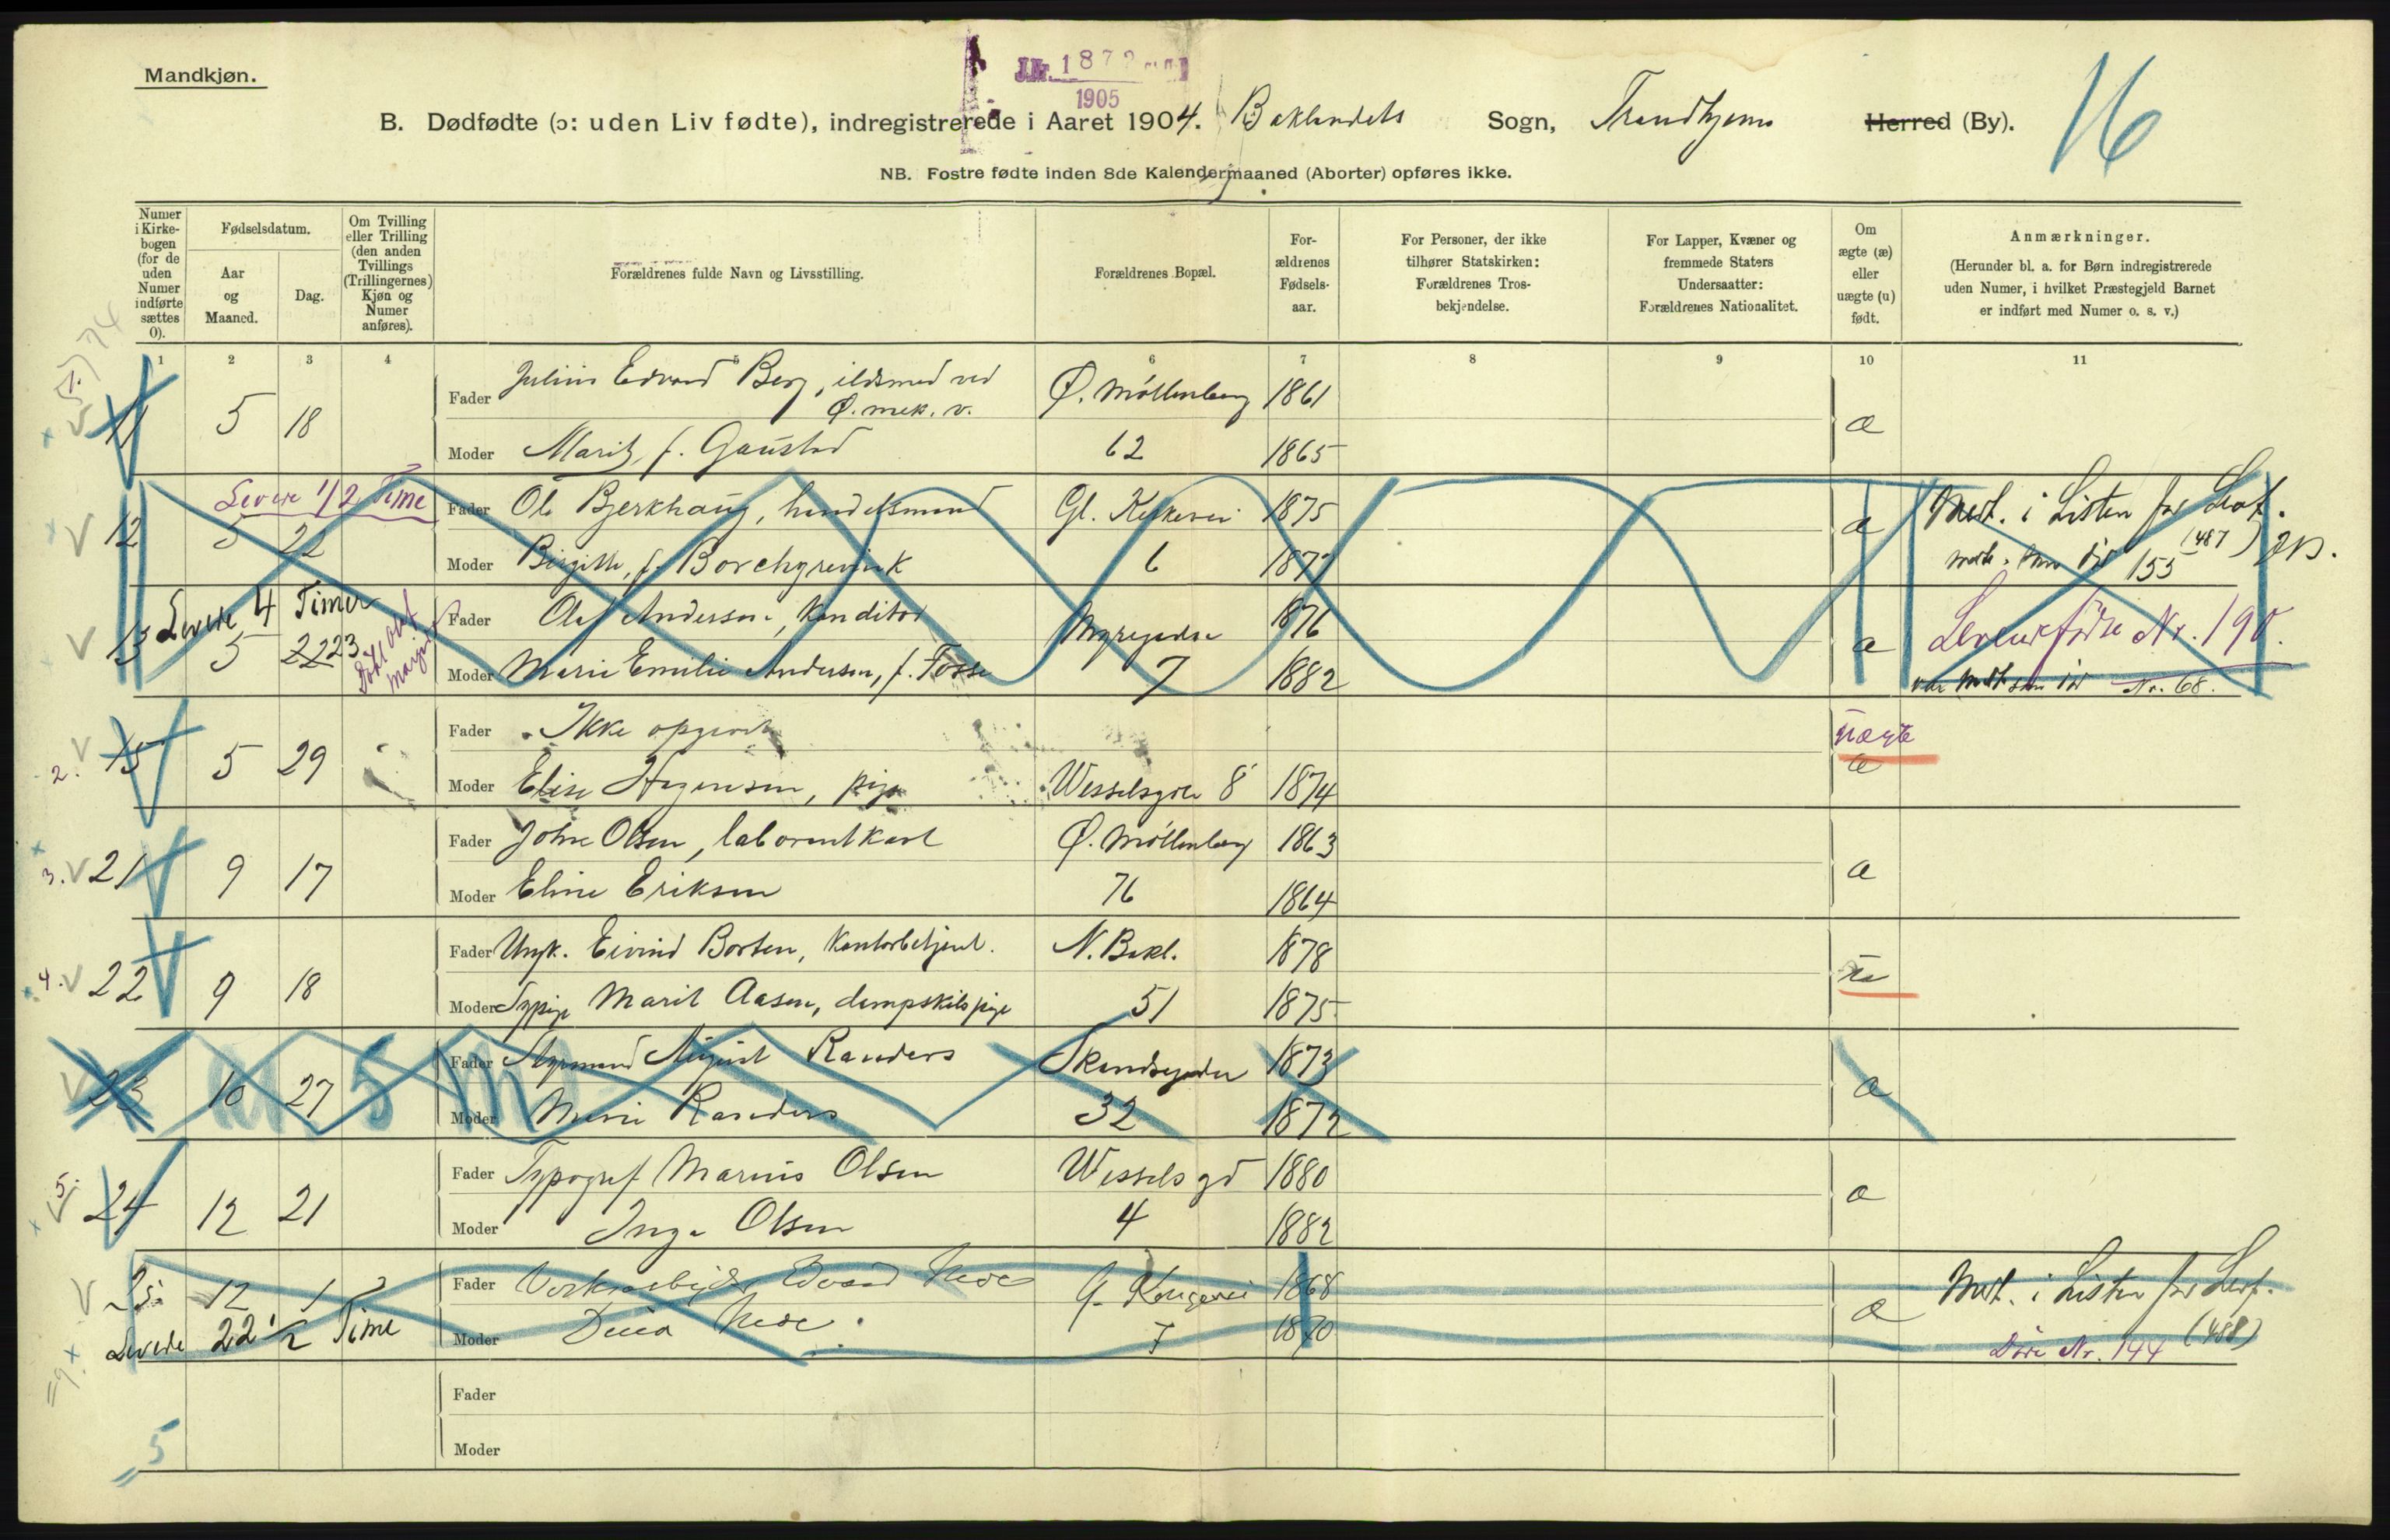 Mandkjøn.
J.Nr. 1872
1905
B. Dødfødte (ɔ: uden Liv fødte), indregistrerede i Aaret 1904. Baklandets Sogn, Trondhjems Herred (By).
16
NB. Fostre fødte inden 8de Kalendermaaned (Aborter) opføres ikke.
Numer i Kirkebogen (for de uden Numer indførte sættes 0).
Fødselsdatum.
Aar og Maaned.
Dag.
Om Tvilling eller Trilling (den anden Tvillings (Trillingernes) Kjøn og Numer anføres).
Forældrenes fulde Navn og Livsstilling.
Forældrenes Bopæl.
Forældrenes Fødselsaar.
For Personer, der ikke tilhører Statskirken: Forældrenes Trosbekjendelse.
For Lapper, Kvæner og fremmede Staters Undersaatter: Forældrenes Nationalitet.
Om ægte (æ) eller uægte (u) født.
Anmærkninger.
(Herunder bl. a. for Børn indregistrerede uden Numer, i hvilket Præstegjeld Barnet er indført med Numer o. s. v.)
1 2 3 4 5 6 7 8 9 10 11
11 5 18 Fader Julius Edvard Berg, ildsmed ved Ø. Møllenberg 1861
Ø. mek. v.
Moder Marit, f. Gaustad 62 1865 æ
Levede 1/2 Time
12 5 22 Fader Ole Bjerkhaug, handelsmand Gl. Kirkevei 1875 æ Medt. i Listen for Levf.
Moder Birgitte, f. Borchgrevink 6 1877 (487) 155
Levede 4 Timer
13 5 22 23 Fader Olaf Andersen, Konditor 1876 æ Levendefødte Nr. 190.
Moder Marie Emilie Andersen, f. Fosse 7 1882 Nr. 68.
15 5 29 Fader Ikke opgivet uægte
2. Moder Elise Hagensen, pige Wesselsgde 8 1874 æ
3. 21 9 17 Fader John Olsen, laborentkarl Ø. Møllenberg 1863 æ
Moder Eline Eriksen 76 1864
4. 22 9 18 Fader Ungk. Eivind Borten, Kontorbetjent. N. Bakl. 1878 u
Moder Sypige Marit Aasen, dampskibspige 51 1875
23 10 27 Fader Styrmand August Randers 1873 æ
Moder Marie Randers 32 1872
5. 24 12 21 Fader Typograf Marius Olsen Wessels gd 1880 æ
Moder Inga Olsen 4 1882
25 12 1 Fader Edvard 1868 æ Medt. i Listen for Levf.
Levede 22 1/2 Time Moder 7 1870 (488)
Døde Nr. 144
Fader
Moder
= 5